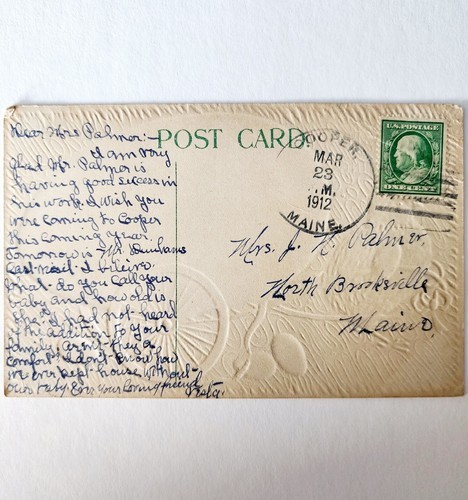 Dear Mrs Palmer:-
I am very
glad Mr. Palmer is
having good success in
his work. I wish you
were coming to Cooper
this coming year.
Tomorrow is Mr. Dunhams
last
What do you call your
baby and how old is
she. I had not heard
of the addition to your
family. aren't they a
comfort. I don't know how
we ever kept house without
our baby. Ever your loving friend
POST CARD.
COOPER,
MAR
23
M.
1912
MAINE.
U.S. POSTAGE
ONE CENT
Mrs. J. H. Palmer,
North Brooksville
Maine.